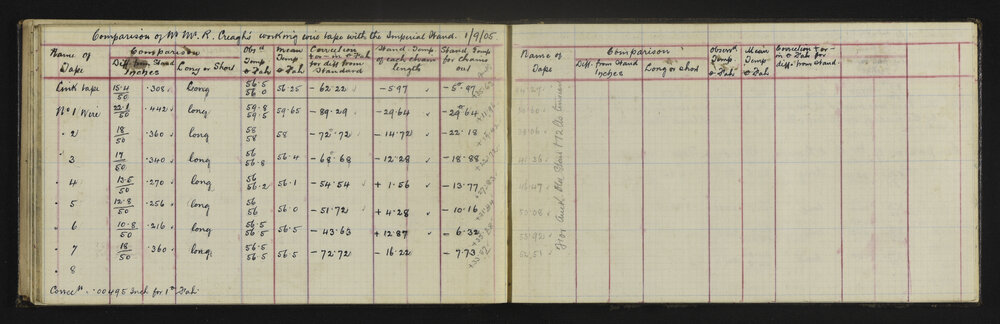 Comparison of Mr Mc. R. Creagh's working wire tape with the Imperial Stand. 1/9/05
Name of Tape Comparison Obsd Temp Fah Mean Temp Fah Correction + or - in Fah for diff from Standard Stand. Temp. of each chain length Stand. Temp for Chains out
Diff. from Stand Inches Long or Short
Link tape 15.4/50 .308 Long 56.5 56.0 56.25 - 62.22 - 5.97 - 5.97
No 1 Wire 22.1/50 .442 long 59.8 59.5 59.65 - 89.29 - 29.64 - 29.64
" 2 18/50 .360 long 58 58 58 - 72.72 - 14.72 - 22.18
" 3 17/50 .340 long 56 56.8 56.4 - 68.68 - 12.28 - 18.88
" 4 13.5/50 .270 long 56 56.2 56.1 - 54.54 + 1.56 - 13.77
" 5 12.8/50 .256 long 56 56 56.0 - 51.72 + 4.28 - 10.16
" 6 10.8/50 .216 long 56.5 56.5 56.5 - 43.63 + 12.87 - 6.32
" 7 18/50 .360 long 56.5 56.5 56.5 - 72.72 - 16.22 - 7.73
" 8
Correctn .00495 Inch for 1° Fah
Name of Tape Comparison Observd Temp Fah Mean Temp Fah Correction + or - in Fah for diff. from Stand.
Diff. from Stand Inches Long or Short